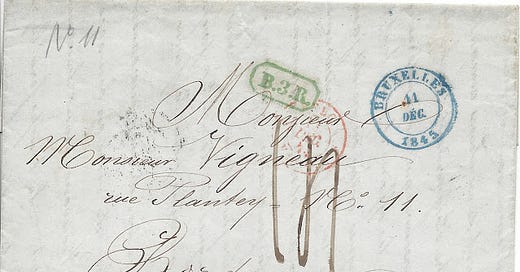 No. 11
B.3.R.
BRUXELLES
11
DÉC.
1845
Monsieur
Monsieur Vigneau
rue Plantey No. 11.